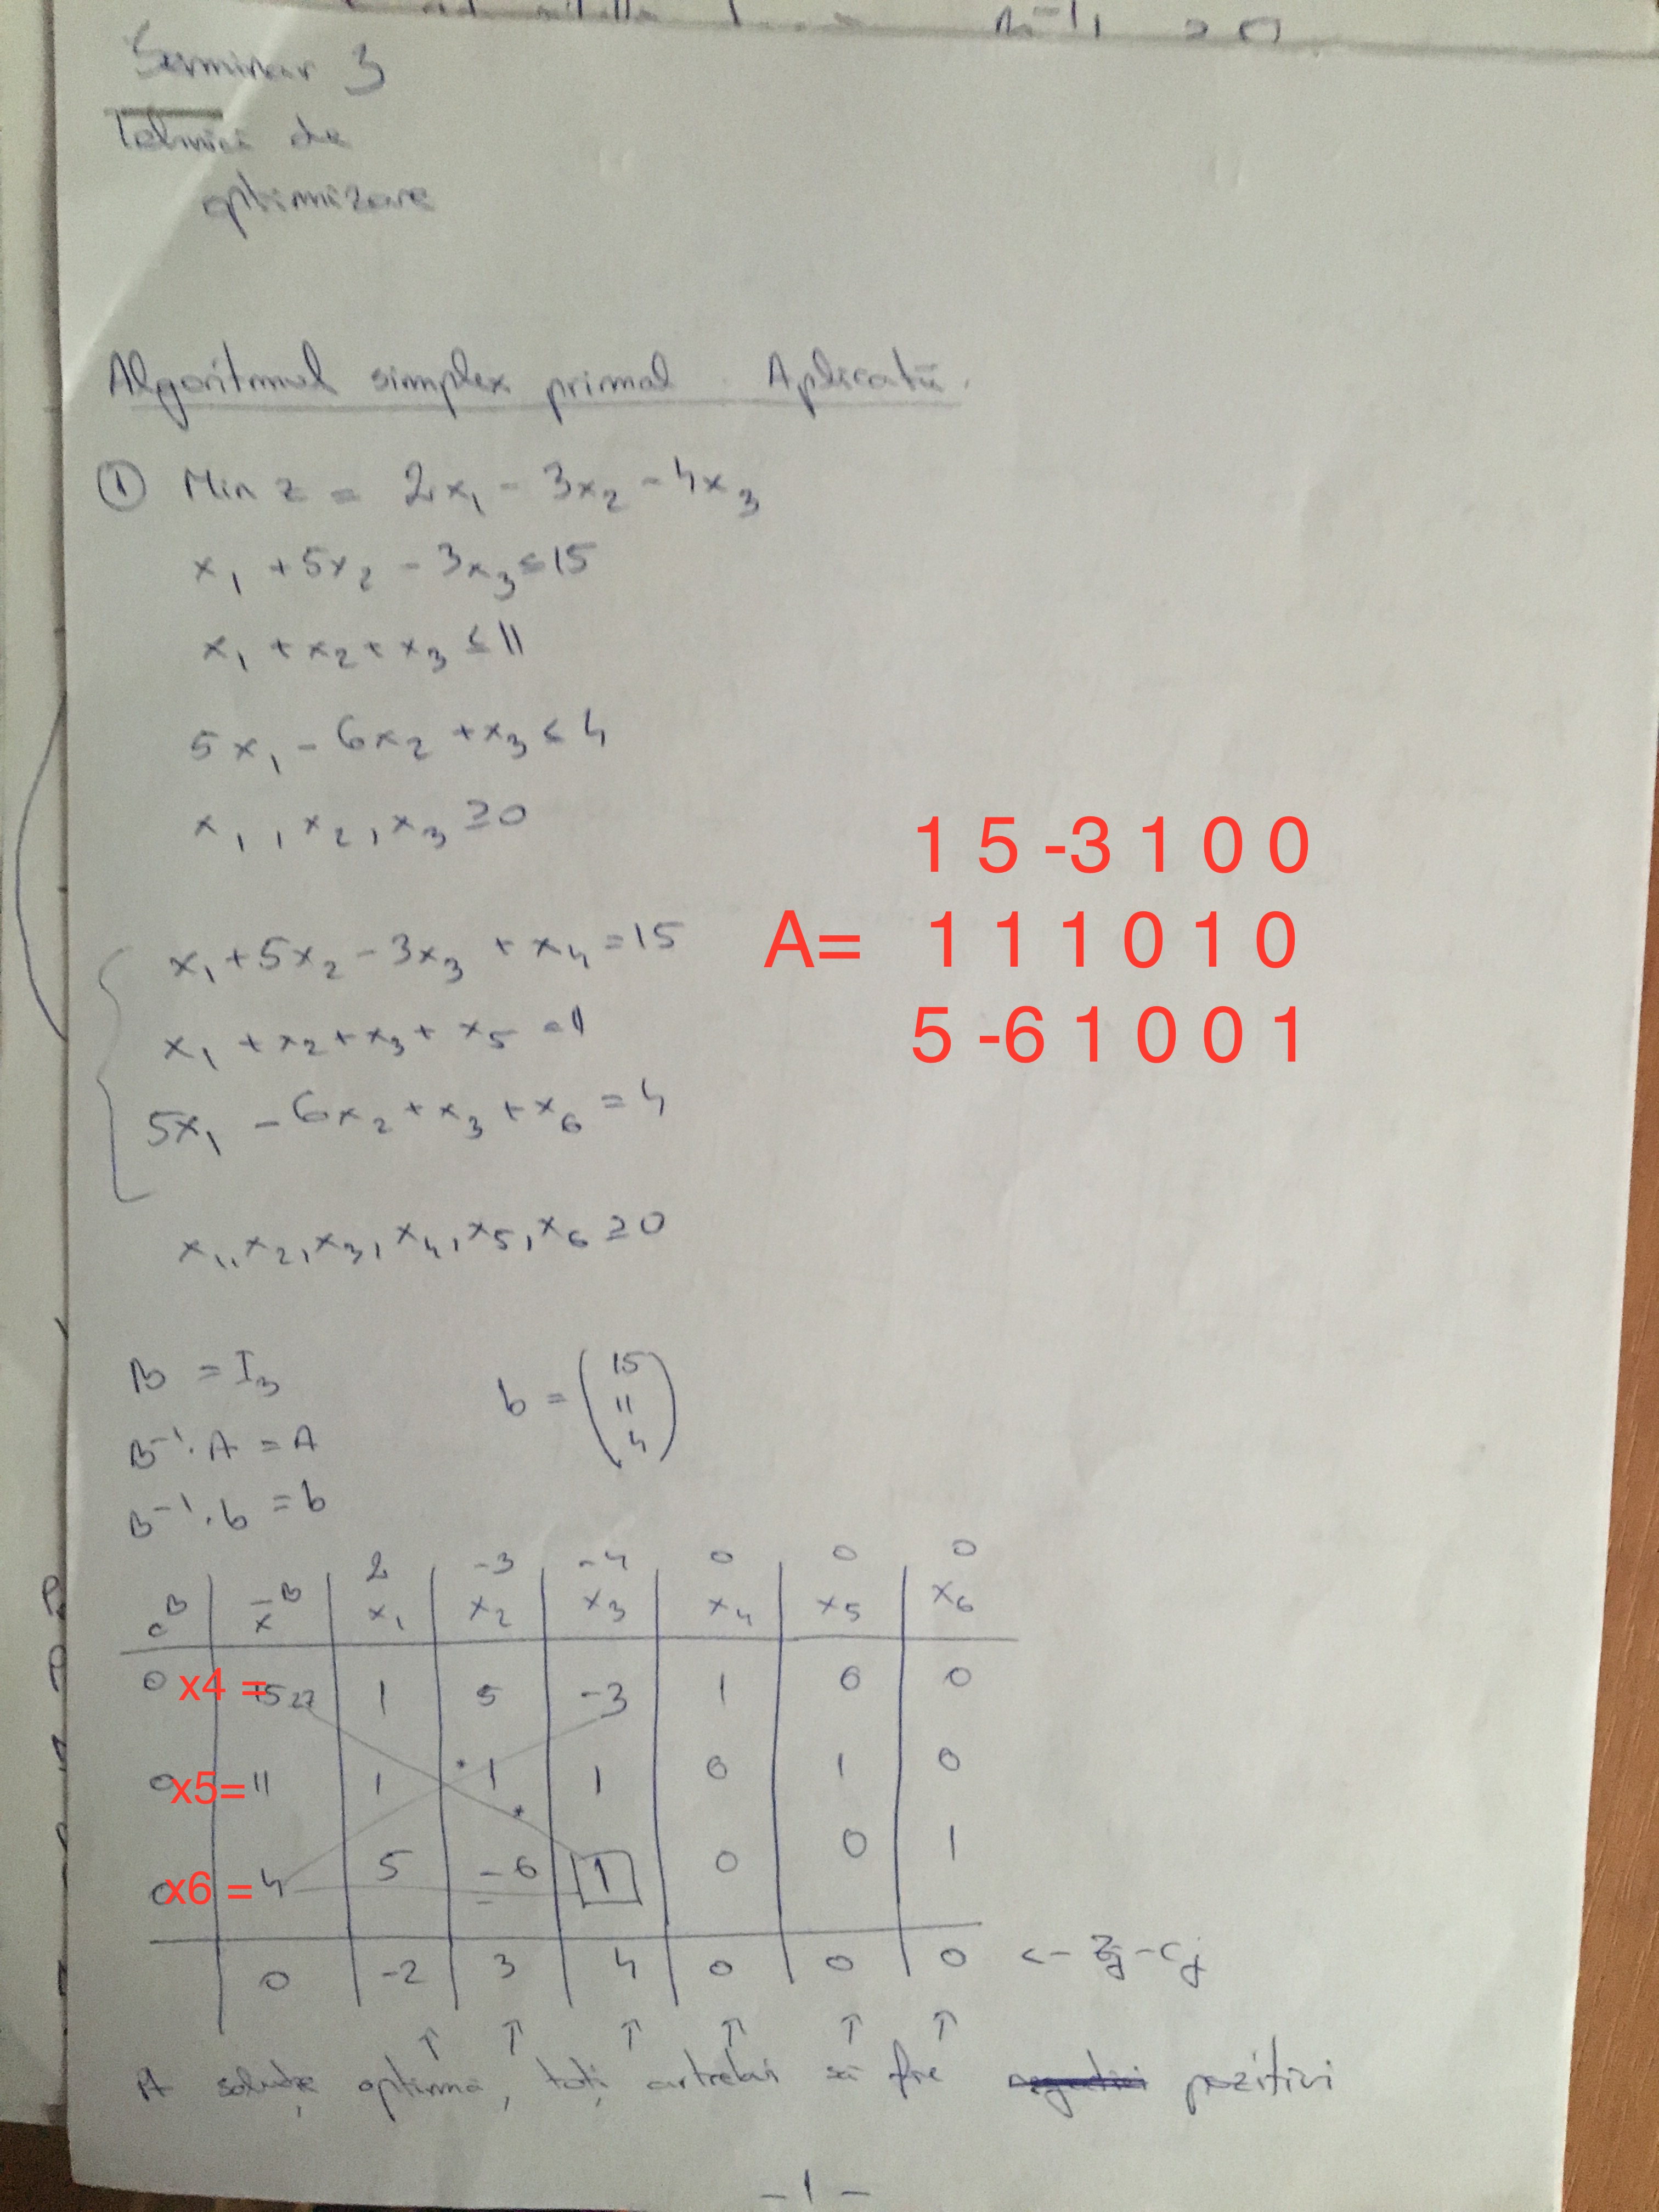 Seminar 3
Tehnici de
optimizare
Algoritmul simplex primal. Aplicații.
① Min z = 2x₁ - 3x₂ - 4x₃
x₁ + 5x₂ - 3x₃ ≤ 15
x₁ + x₂ + x₃ ≤ 11
5x₁ - 6x₂ + x₃ ≤ 4
x₁, x₂, x₃ ≥ 0
1 5 -3 1 0 0
A= 1 1 1 0 1 0
5 -6 1 0 0 1
x₁ + 5x₂ - 3x₃ + x₄ = 15
x₁ + x₂ + x₃ + x₅ = 11
5x₁ - 6x₂ + x₃ + x₆ = 4
x₁, x₂, x₃, x₄, x₅, x₆ ≥ 0
B = I₃
b = (15 11 4)
B⁻¹·A = A
B⁻¹·b = b
2 -3 -4 0 0 0
cᴮ x̄ᴮ x₁ x₂ x₃ x₄ x₅ x₆
0 x4 = 15 27 1 5 -3 1 0 0
0 x5= 11 1 1 1 0 1 0
0 x6 = 4 5 -6 1 0 0 1
0 -2 3 4 0 0 0 <- zj - cj
↑ ↑ ↑ ↑ ↑ ↑
soluție optimă, toți ar trebui să fie negativi pozitivi
- 1 -